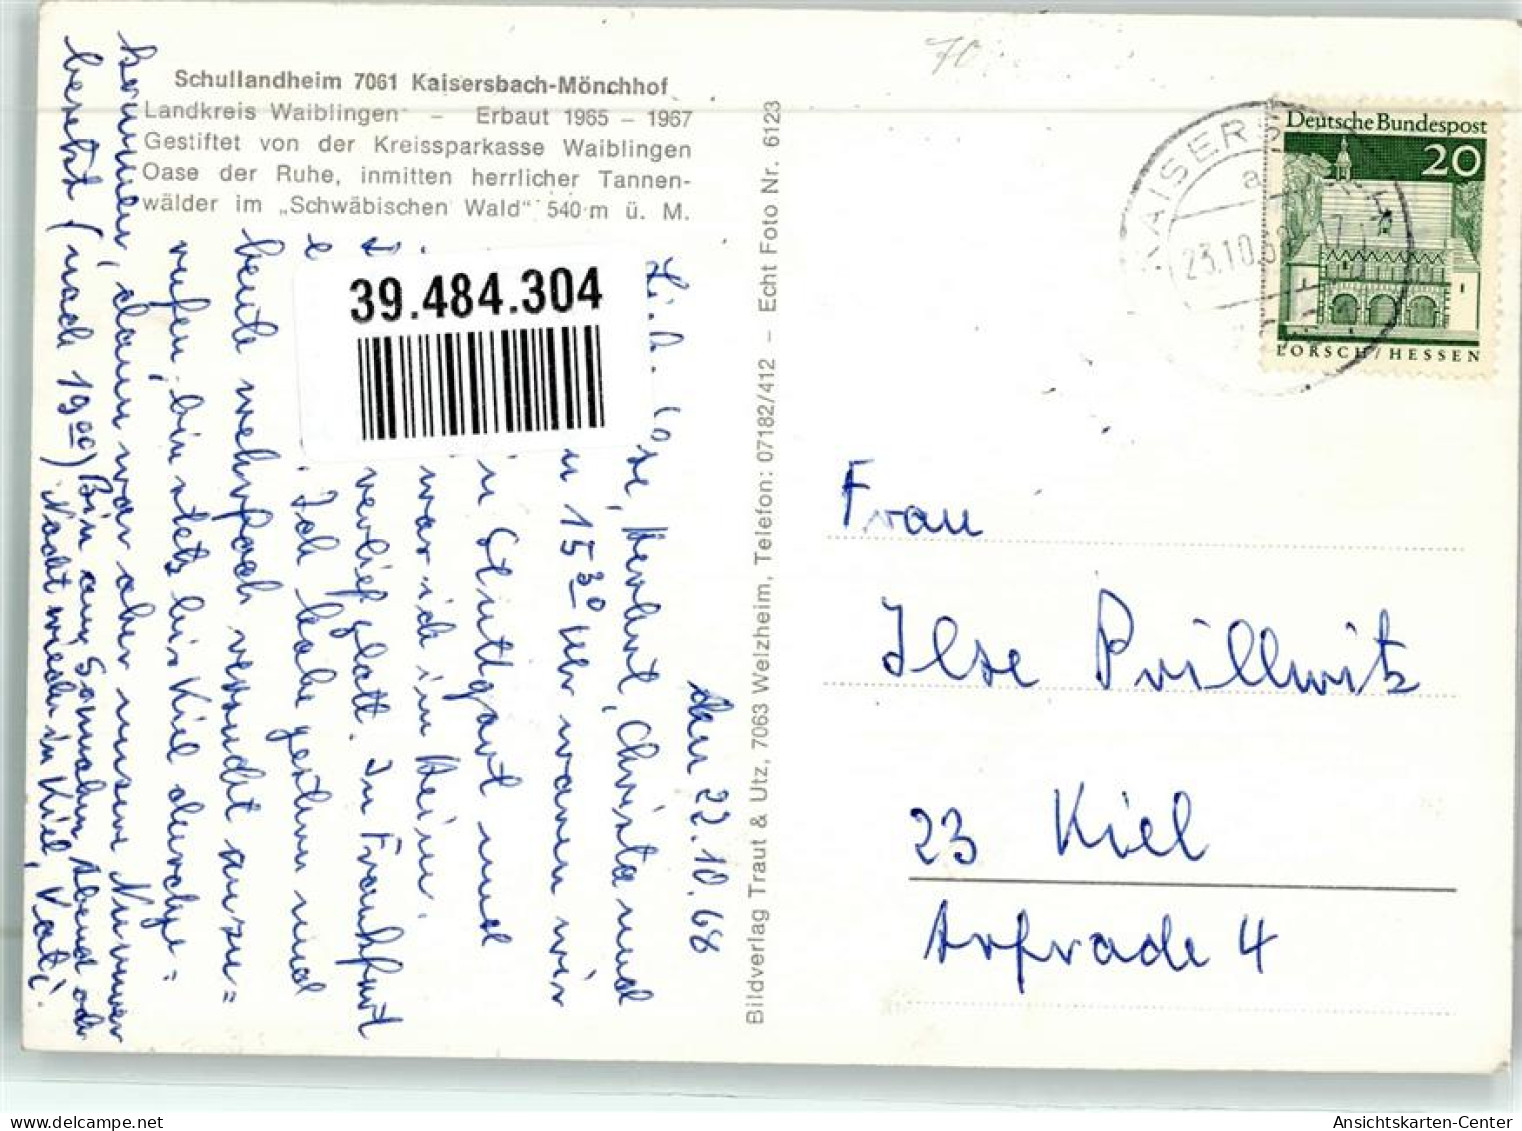 Schullandheim 7061 Kaisersbach-Mönchhof
Landkreis Waiblingen - Erbaut 1965 - 1967
Gestiftet von der Kreissparkasse Waiblingen
Oase der Ruhe, inmitten herrlicher Tannen-
wälder im „Schwäbischen Wald" 540 m ü. M.
39.484.304
den 22.10.68
Ilse, Herbert, Christa und
15 30 Uhr waren wir
in Stuttgart und
war ich im Heim.
verlief glatt. In Frankfurt
Ich habe gestern und
heute mehrfach versucht anzu=
rufen, bin stets bis Kiel durchge=
kommen, dann war aber unsere Nummer
besetzt (nach 19 00) Bin am Sonnabend oder
Nacht wieder in Kiel, Vati.
Bildverlag Traut & Utz, 7063 Welzheim, Telefon: 07182/412 - Echt Foto Nr. 6123
70
KAISERSBACH
a
23.10.68
Deutsche Bundespost
20
LORSCH/HESSEN
Frau
Ilse Prillwitz
23 Kiel
Arfrade 4
Ansichtskarten-Center